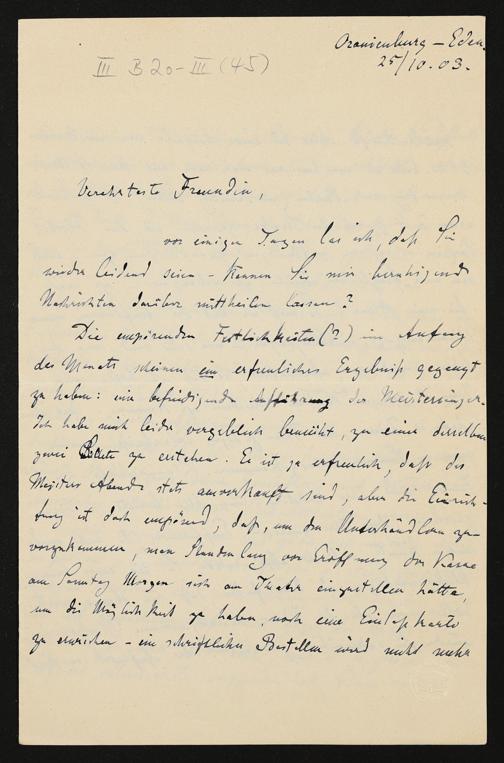 Oranienburg – Eden.
25/10.03.
III B 20–III (45)
Verehrteste Freundin,
vor einigen Tagen las ich, daß Sie
wieder leidend seien – können Sie mir beruhigende
Nachrichten darüber mittheilen lassen?
Die empörenden Festlichkeiten (?) im Anfang
des Monats scheinen ein erfreuliches Ergebniß gezeugt
zu haben: eine befriedigende Aufführung der Meistersinger.
Ich habe mich leider vergeblich bemüht, zu einer derselben
zwei zu erstehen. Es ist ja erfreulich, daß des
Meisters Abende stets ausverkauft sind, aber die Einrich-
tung ist doch empörend, daß, um den Unterhändlern zu-
vorzukommen, man Stunden lang vor Eröffnung der Kasse
am Sonntag Morgen sich am Theater einzustellen hätte,
um die Möglichkeit zu haben, noch eine Einlaßkarte
zu erwischen – ein schriftliches Bestellen wird nicht mehr